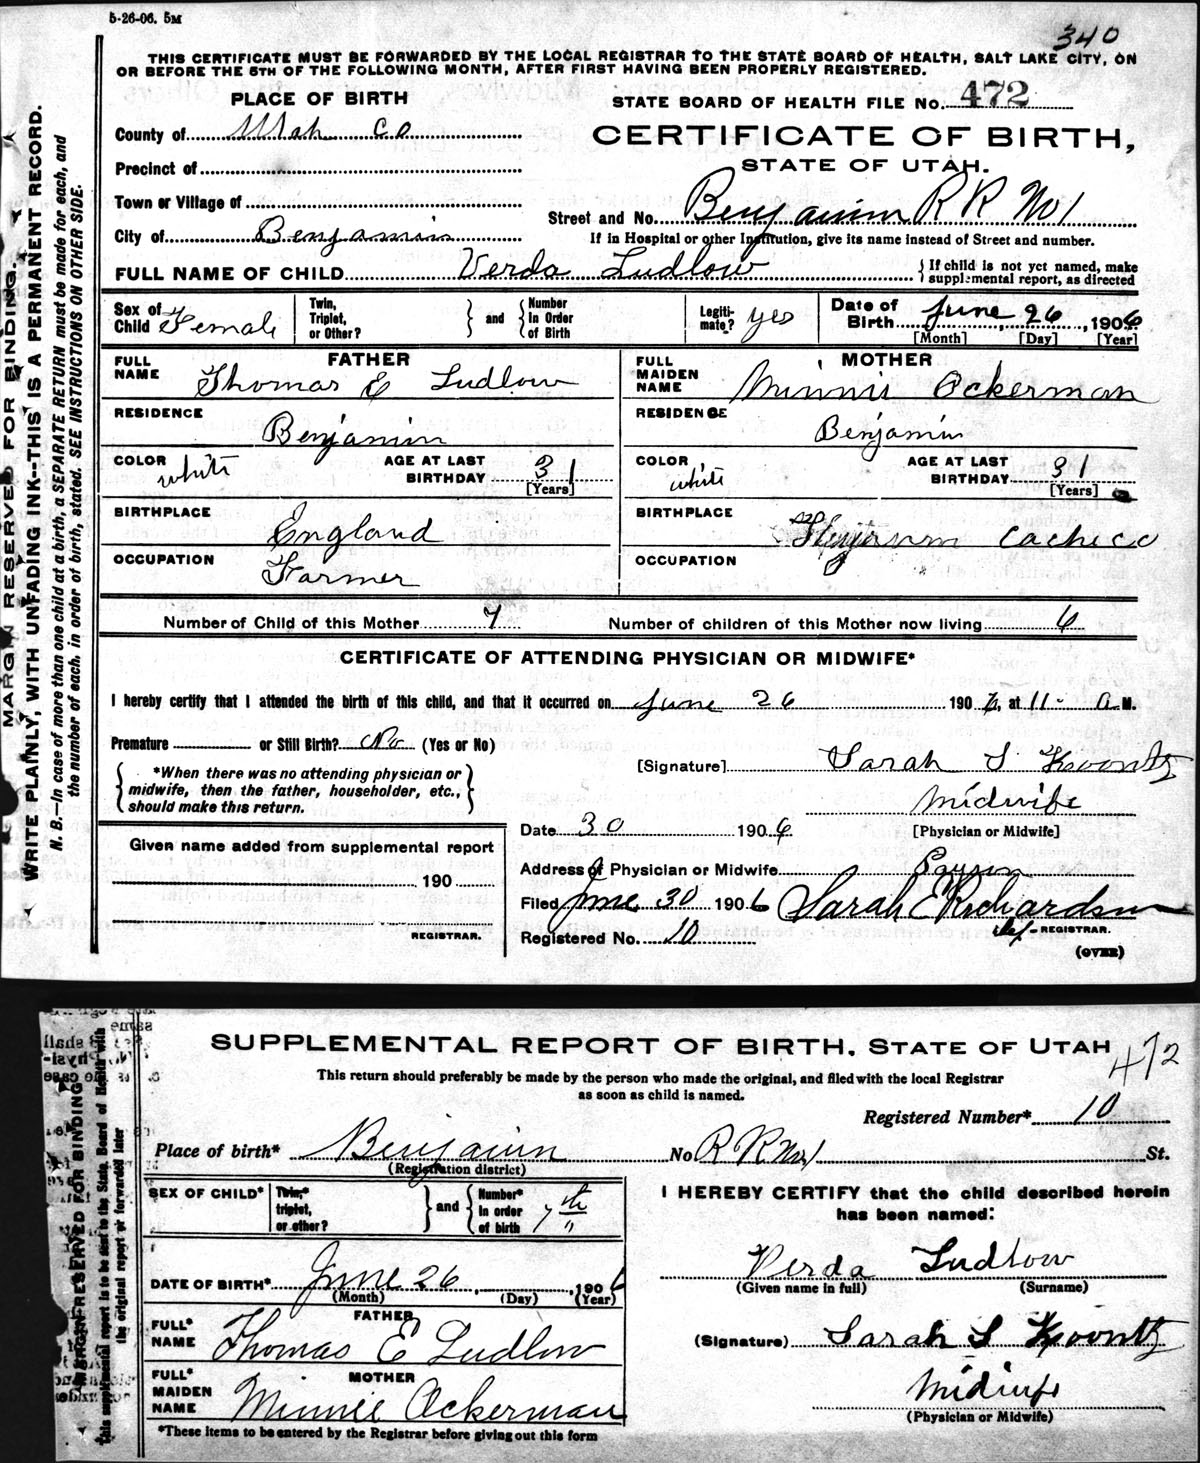 5-26-06. 5M
340
THIS CERTIFICATE MUST BE FORWARDED BY THE LOCAL REGISTRAR TO THE STATE BOARD OF HEALTH, SALT LAKE CITY, ON
OR BEFORE THE 5TH OF THE FOLLOWING MONTH, AFTER FIRST HAVING BEEN PROPERLY REGISTERED.
MARGIN RESERVED FOR BINDING.
WRITE PLAINLY, WITH UNFADING INK--THIS IS A PERMANENT RECORD.
N. B.—In case of more than one child at a birth, a SEPARATE RETURN must be made for each, and
the number of each, in order of birth, stated. SEE INSTRUCTIONS ON OTHER SIDE.
PLACE OF BIRTH
STATE BOARD OF HEALTH FILE No. 472
County of Utah Co
CERTIFICATE OF BIRTH,
STATE OF UTAH.
Precinct of
Town or Village of
Street and No. Benjamin R R No 1
City of Benjamin
If in Hospital or other Institution, give its name instead of Street and number.
FULL NAME OF CHILD Verda Ludlow
{ If child is not yet named, make
supplemental report, as directed
Sex of Child Female
Twin, Triplet, or Other? } and { Number In Order of Birth
Legiti-mate? yes
Date of Birth June 26, 1906
[Month] [Day] [Year]
FATHER
FULL NAME Thomas E Ludlow
MOTHER
FULL MAIDEN NAME Minnie Ockerman
RESIDENCE Benjamin
RESIDENCE Benjamin
COLOR white
AGE AT LAST BIRTHDAY 31 [Years]
COLOR white
AGE AT LAST BIRTHDAY 31 [Years]
BIRTHPLACE England
BIRTHPLACE Cache Co
OCCUPATION Farmer
OCCUPATION
Number of Child of this Mother 7
Number of children of this Mother now living 6
CERTIFICATE OF ATTENDING PHYSICIAN OR MIDWIFE*
I hereby certify that I attended the birth of this child, and that it occurred on June 26 1906, at 11- A M.
Premature or Still Birth? No (Yes or No)
[Signature] Sarah S Koontz
{ *When there was no attending physician or
midwife, then the father, householder, etc.,
should make this return. }
Midwife
[Physician or Midwife]
Date 30 1906
Given name added from supplemental report
190
REGISTRAR.
Address of Physician or Midwife Payson
Filed June 30 1906 Sarah E Richardson
Dep- REGISTRAR.
Registered No. 10
(OVER)
SUPPLEMENTAL REPORT OF BIRTH. STATE OF UTAH
472
This return should preferably be made by the person who made the original, and filed with the local Registrar
as soon as child is named.
Registered Number* 10
Place of birth* Benjamin No R R No 1 St.
(Registration district)
MARGIN RESERVED FOR BINDING
This supplemental report is to be sent to the State Board of Health with
the original report or forwarded later
SEX OF CHILD*
Twin,* triplet, or other? } and { Number* In order of birth 7th
I HEREBY CERTIFY that the child described herein
has been named:
DATE OF BIRTH* June 26, 1906
(Month) (Day) (Year)
Verda Ludlow
(Given name in full) (Surname)
FATHER
FULL* NAME Thomas E Ludlow
(Signature) Sarah S Koontz
MOTHER
FULL* MAIDEN NAME Minnie Ockerman
Midwife
(Physician or Midwife)
*These items to be entered by the Registrar before giving out this form